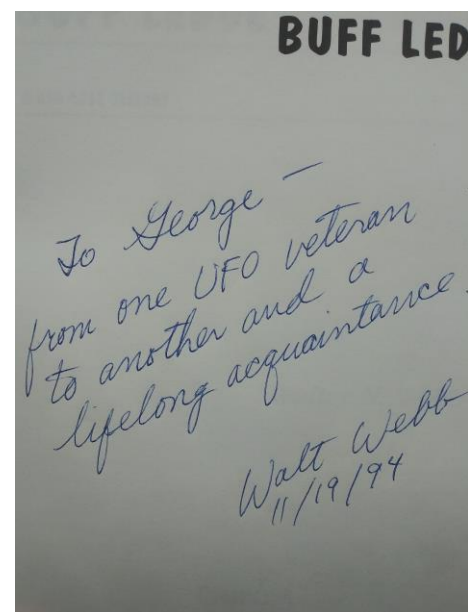 BUFF LED
To George —
from one UFO veteran
to another and a
lifelong acquaintance.
Walt Webb
11/19/94